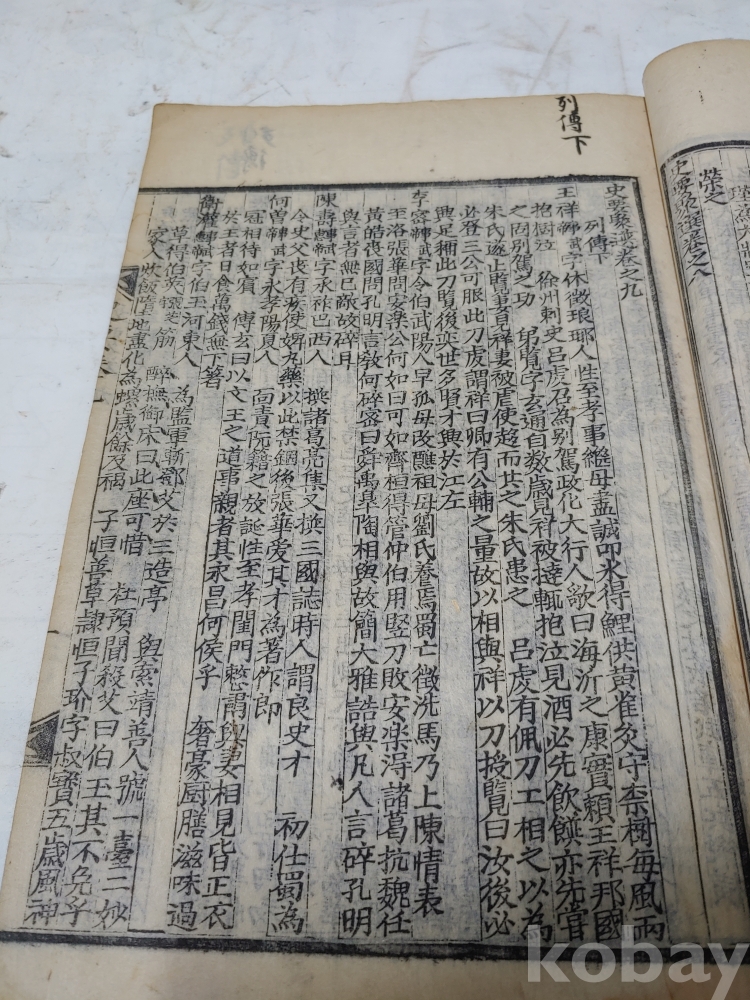 列傳下
史要聚選卷之九
列傳下
王祥 字休徵琅琊人性至孝事繼母盡誠叩氷得鯉供黃雀灸守柰樹每風雨
抱樹泣 徐州刺史呂虔召為別駕政化大行人歌曰海沂之康實賴王祥邦國
之 別駕之功 弟覽字玄通自数歲見祥被撻輒抱泣見酒必先飮饌亦先嘗
朱氏遂止覽妻見祥妻被虐使趍而共之朱氏患之 呂虔有佩刀工相之以為
必登三公可服此刀虔謂祥曰卿有公輔之量故以相與祥以刀授覽曰汝後必
興足稱此刀覽後奕世多賢才興於江左
李密 字令伯武陽人早孤母改醮祖母劉氏養焉蜀亡徵洗馬乃上陳情表
至洛張華問安楽公何如曰可如齊桓得管仲伯用竪刀敗安楽淂諸葛抗魏任
黃皓喪國問孔明言教何碎密曰舜禹皐陶相與故簡大雅誥與凡人言碎孔明
與言者無已敵故碎耳
陳壽 字承祚巴西人 撰諸葛亮集又撰三國誌時人謂良史才 初仕蜀為
令史父丧有疾使婢丸藥以此禁錮後張華爱其才為著作郎
何曽 字永孝陽夏人 面責阮籍之放誕性至孝閨門整謂與妻相見皆正衣
冠相待如賓 傅玄曰以文王之道事親者其永昌何侯乎 奢豪厨膳滋味過
於王者日食萬錢無下箸
衛瓘 字伯玉河東人 為監軍斬鄧艾於三造亭 與索靖善人號一臺二妙
草得伯英 筋 醉撫御床曰此座可惜 杜預聞殺艾曰伯玉其不免乎
家人炊飯墮地盡化為螺歲餘及禍 子恒善草隷恒子玠字叔寶五歲風神
榮之
史要聚選卷之八
kobay